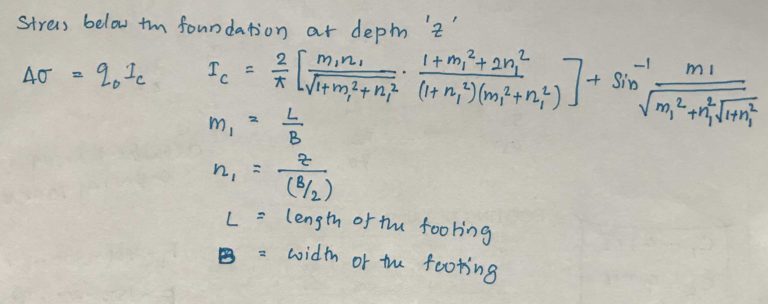 Stress below the foundation at depth 'z'
Δσ = q₀ I_c    I_c = 2/π [ m₁n₁/√(1+m₁²+n₁²) · (1+m₁²+2n₁²)/((1+n₁²)(m₁²+n₁²)) ] + Sin⁻¹ m₁/(√(m₁²+n₁²) √(1+n₁²))
m₁ = L/B
n₁ = z/(B/2)
L = length of the footing
B = width of the footing